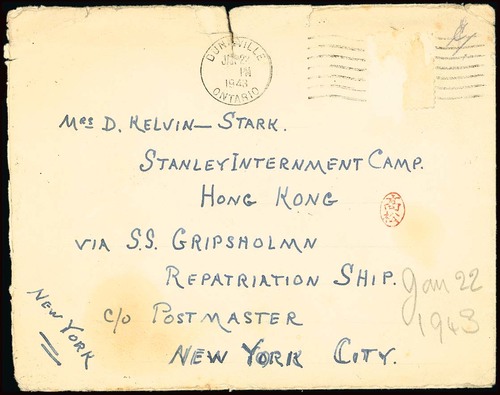 DUNNVILLE
JAN 22
PM
1943
ONTARIO
Mrs D. KELVIN — STARK.
STANLEY INTERNMENT CAMP.
HONG KONG
VIA S.S. GRIPSHOLMN
REPATRIATION SHIP.
c/o POSTMASTER
NEW YORK CITY.
NEW YORK
Jan 22
1943